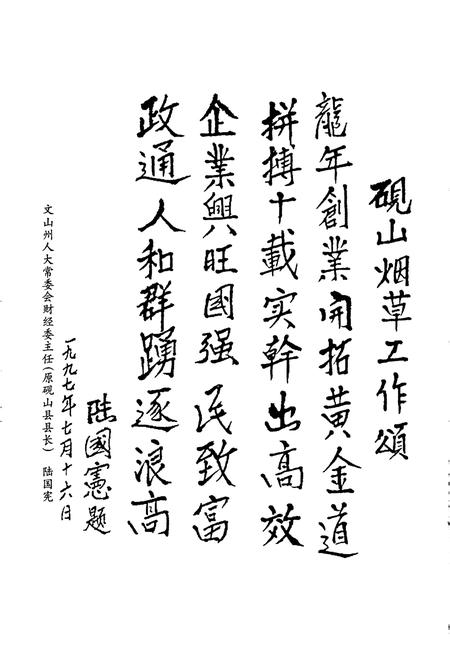 砚山烟草工作頌
龍年創業開拓黄金道
拼搏十載实幹出高效
企業興旺國强民致富
政通人和群踴逐浪高
陆國憲題
一九九七年七月十六日
文山州人大常委会财经委主任(原砚山县县长) 陆国宪